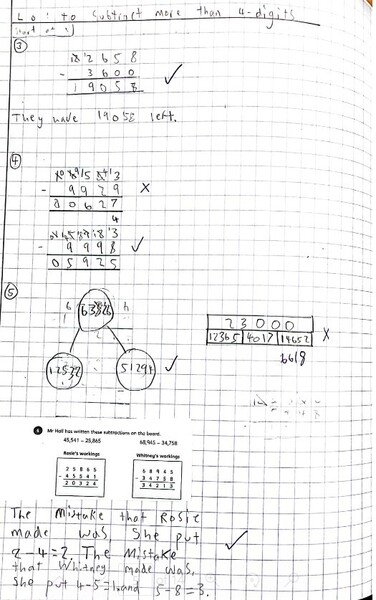 LO: to Subtract more than 4-digits
③
2 2 6 5 8
- 3 6 0 0
1 9 0 5 8
They have 19058 left.
④
- 9 9 7 9
X
- 9 9 9 8
0 5 9 2 5
⑤
2 3 0 0 0
12365 4017 14652
X
6618
12532
51294
6 Mr Hall has written these subtractions on the board.
45,541 − 25,865 68,945 − 34,758
Rosie's workings Whitney's workings
2 5 8 6 5 6 8 9 4 5
- 4 5 5 4 1 - 3 4 7 5 8
2 0 3 2 4 3 4 2 1 3
The Mistake that Rosie
made was she put
2-4=2. The Mistake
that Whitney made was,
She put 4-5=1 and 5-8=3.